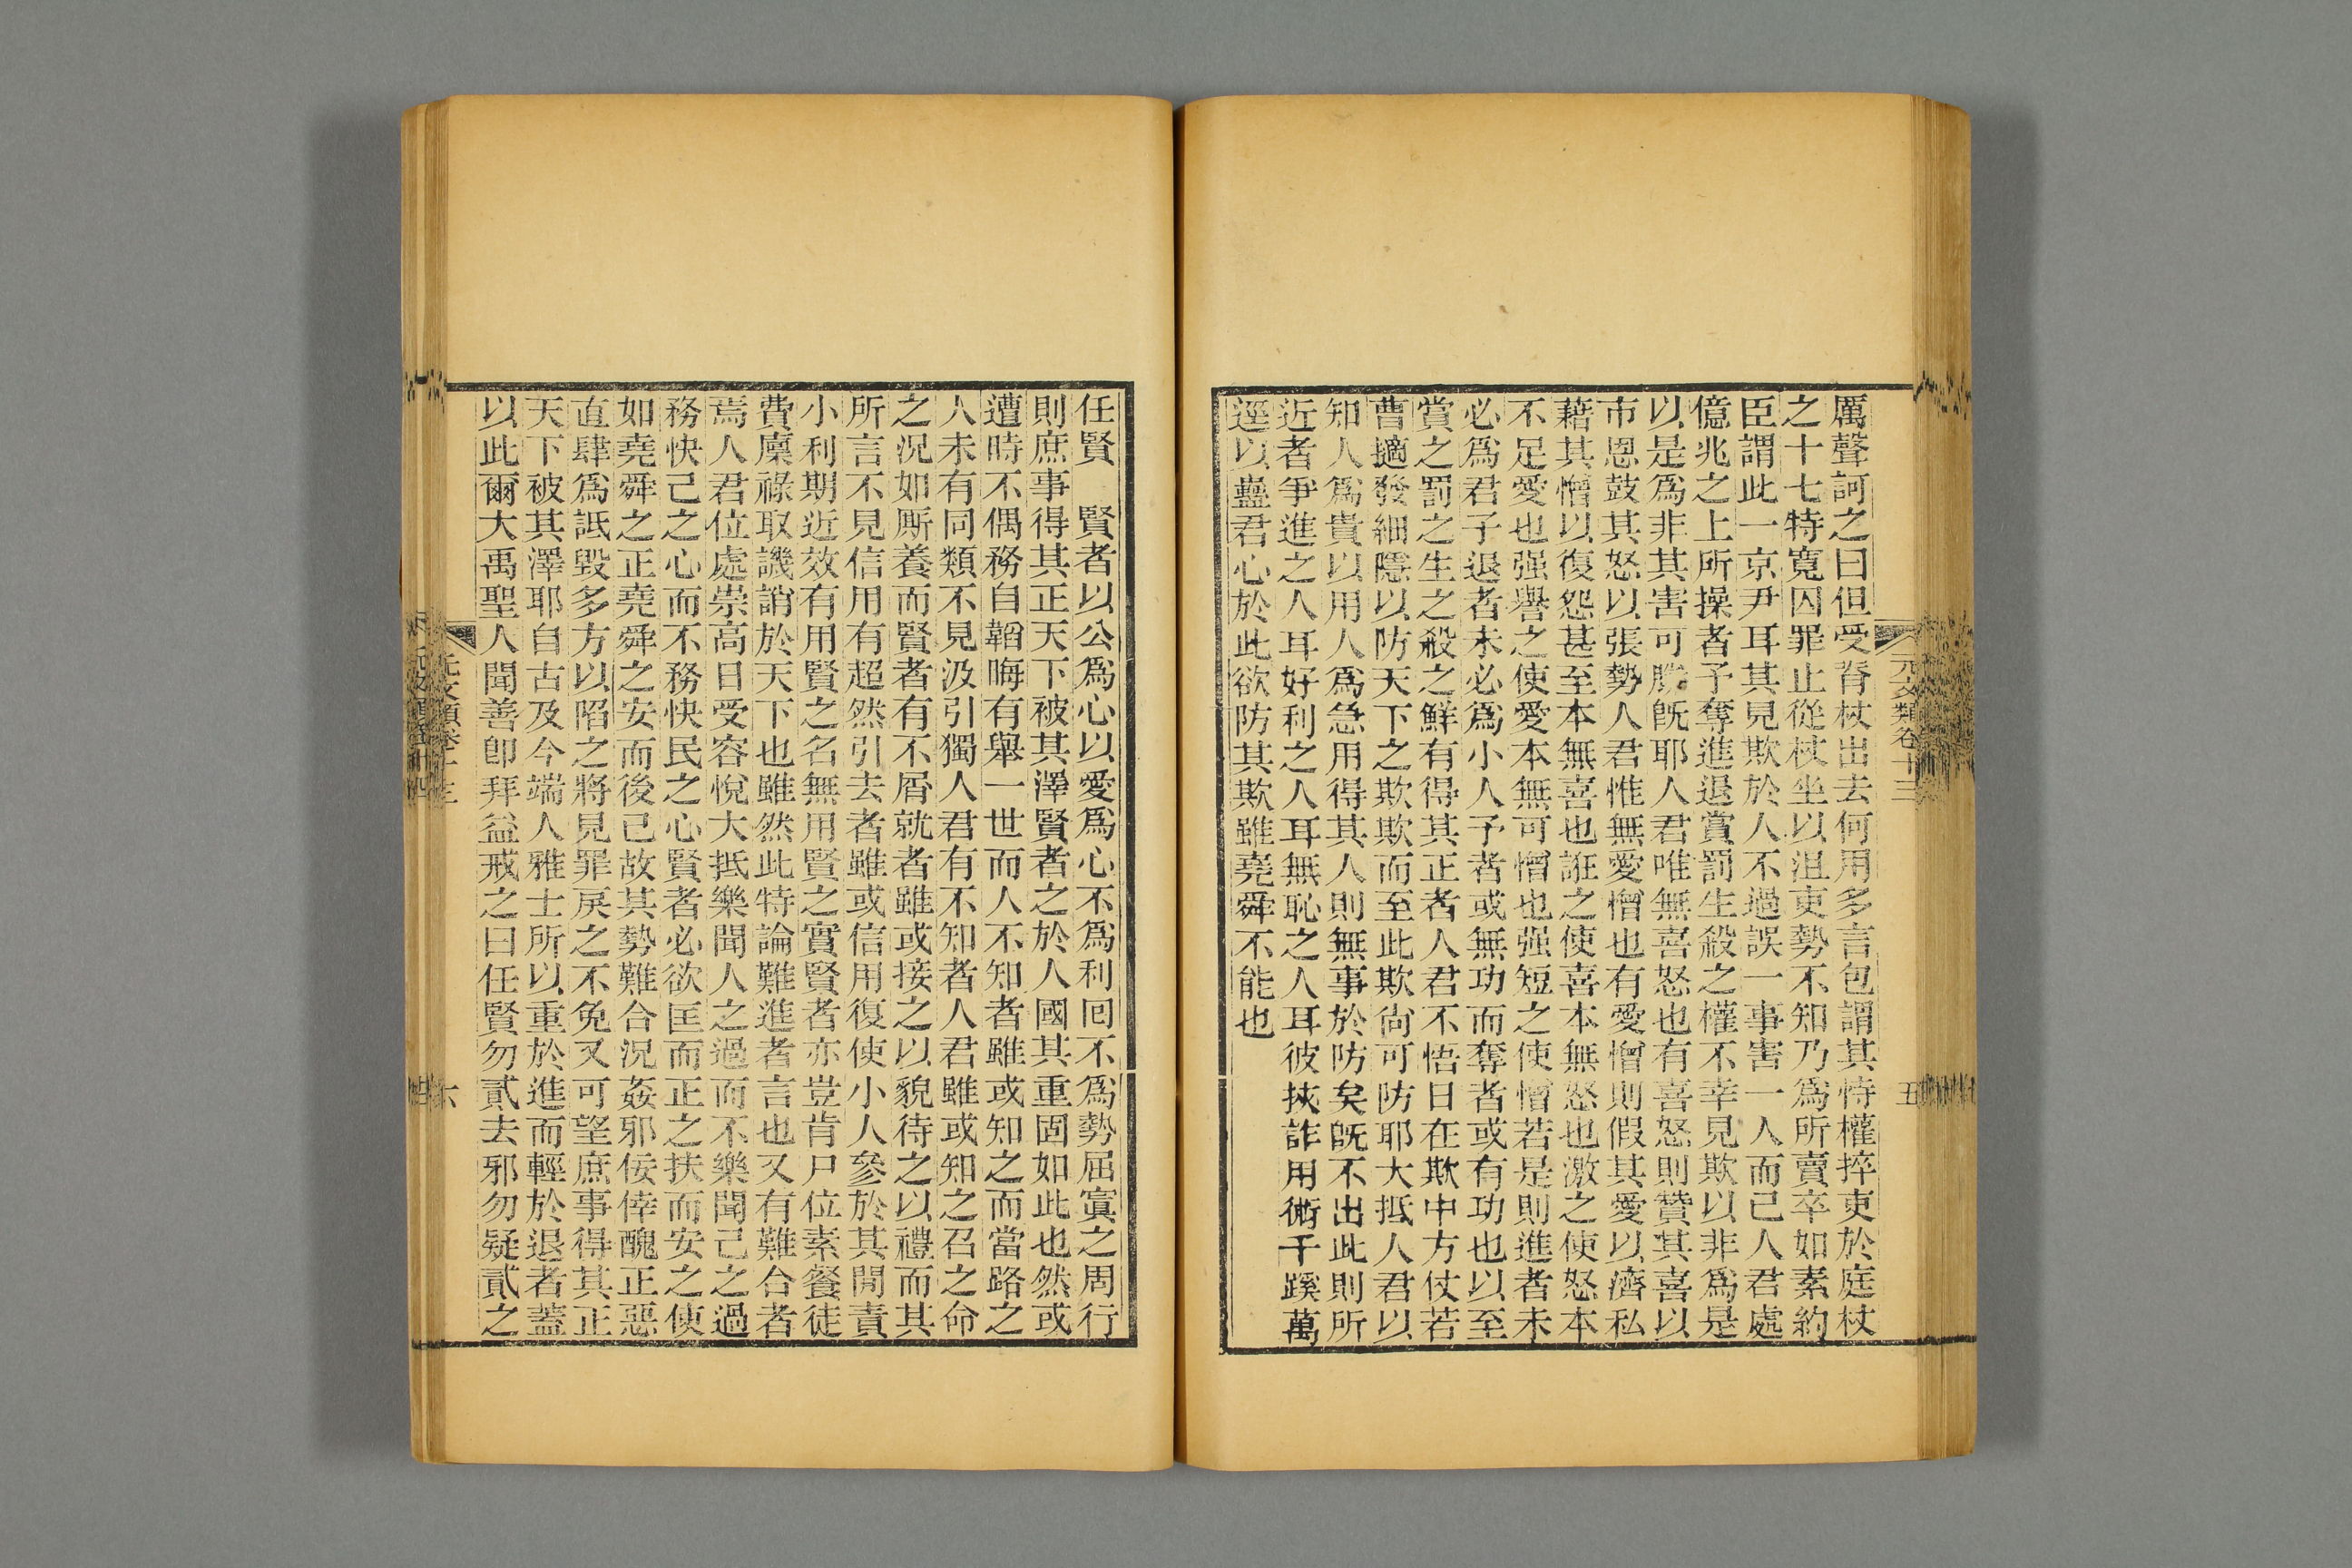 厲聲訶之曰但受脊杖出去何用多言包謂其恃權捽吏於庭杖
之十七特寬囚罪止從杖坐以沮吏勢不知乃爲所賣卒如素約
臣謂此一京尹耳其見欺於人不過誤一事害一人而已人君處
億兆之上所操者予奪進退賞罰生殺之權不幸見欺以非爲是
以是爲非其害可勝旣耶人君唯無喜怒也有喜怒則贊其喜以
市恩鼓其怒以張勢人君惟無愛憎也有愛憎則假其愛以濟私
藉其憎以復怨甚至本無喜也誑之使喜本無怒也激之使怒本
不足愛也强譽之使愛本無可憎也强短之使憎若是則進者未
必爲君子退者未必爲小人予者或無功而奪者或有功也以至
賞之罰之生之殺之鮮有得其正者人君不悟日在欺中方仗若
曹擿發細隱以防天下之欺欺而至此欺尙可防耶大抵人君以
知人爲貴以用人爲急用得其人則無事於防矣旣不出此則所
近者爭進之人耳好利之人耳無恥之人耳彼挾詐用術千蹊萬
逕以蠱君心於此欲防其欺雖堯舜不能也
元文類卷十三
五
任賢　賢者以公爲心以愛爲心不爲利囘不爲勢屈寘之周行
則庶事得其正天下被其澤賢者之於人國其重固如此也然或
遭時不偶務自韜晦有舉一世而人不知者雖或知之而當路之
人未有同類不見汲引獨人君有不知者人君雖或知之召之命
之況如厮養而賢者有不屑就者雖或接之以貌待之以禮而其
所言不見信用有超然引去者雖或信用復使小人參於其閒責
小利期近效有用賢之名無用賢之實賢者亦豈肯尸位素餐徒
費廩祿取譏誚於天下也雖然此特論難進者言也又有難合者
焉人君位處崇高日受容悅大抵樂聞人之過而不樂聞己之過
務快己之心而不務快民之心賢者必欲匡而正之扶而安之使
如堯舜之正堯舜之安而後已故其勢難合況姦邪佞倖醜正惡
直肆爲詆毀多方以陷之將見罪戾之不免又可望庶事得其正
天下被其澤耶自古及今端人雅士所以重於進而輕於退者蓋
以此爾大禹聖人聞善卽拜益戒之曰任賢勿貳去邪勿疑貳之
元文類卷十三
六